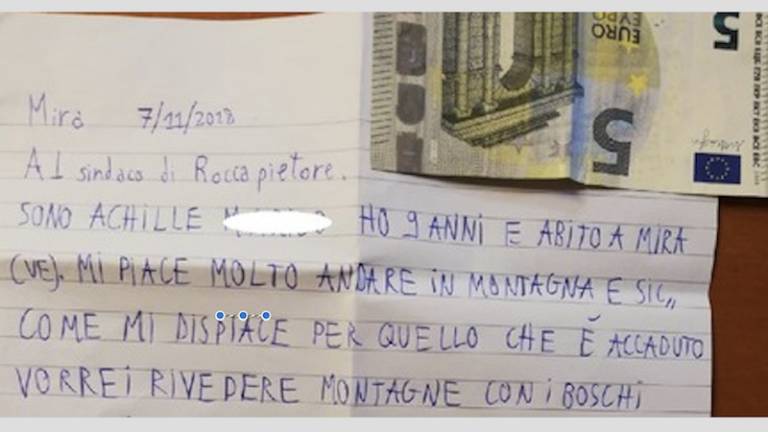 EURO
ΕΥΡΩ
5
5
Mira 7/11/2018
Al sindaco di Rocca pietore.
SONO ACHILLE HO 9 ANNi E ABITO A MIRA
(VE). Mi PIACE MOLTO ANDARE iN MONTAGNA E SIC,,
COME MI DISPIACE PER QUELLO CHE È ACCADUTO
VORREi RIVEDERE MONTAGNE CON i BOSCHi